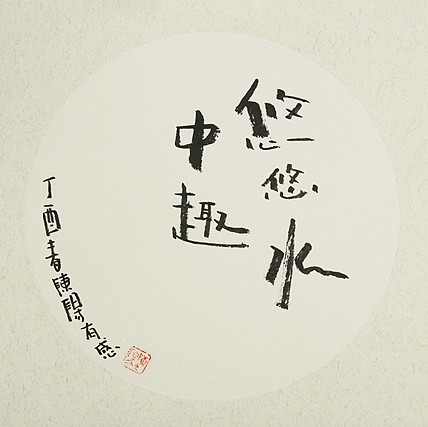 悠悠水
中趣
丁酉春陳閑有感